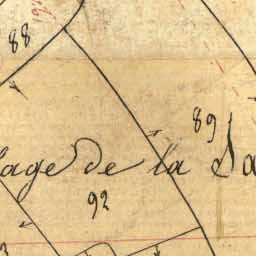 88
89
lage de la Sa
92